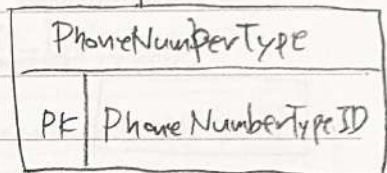 PhoneNumberType
PK PhoneNumberTypeID